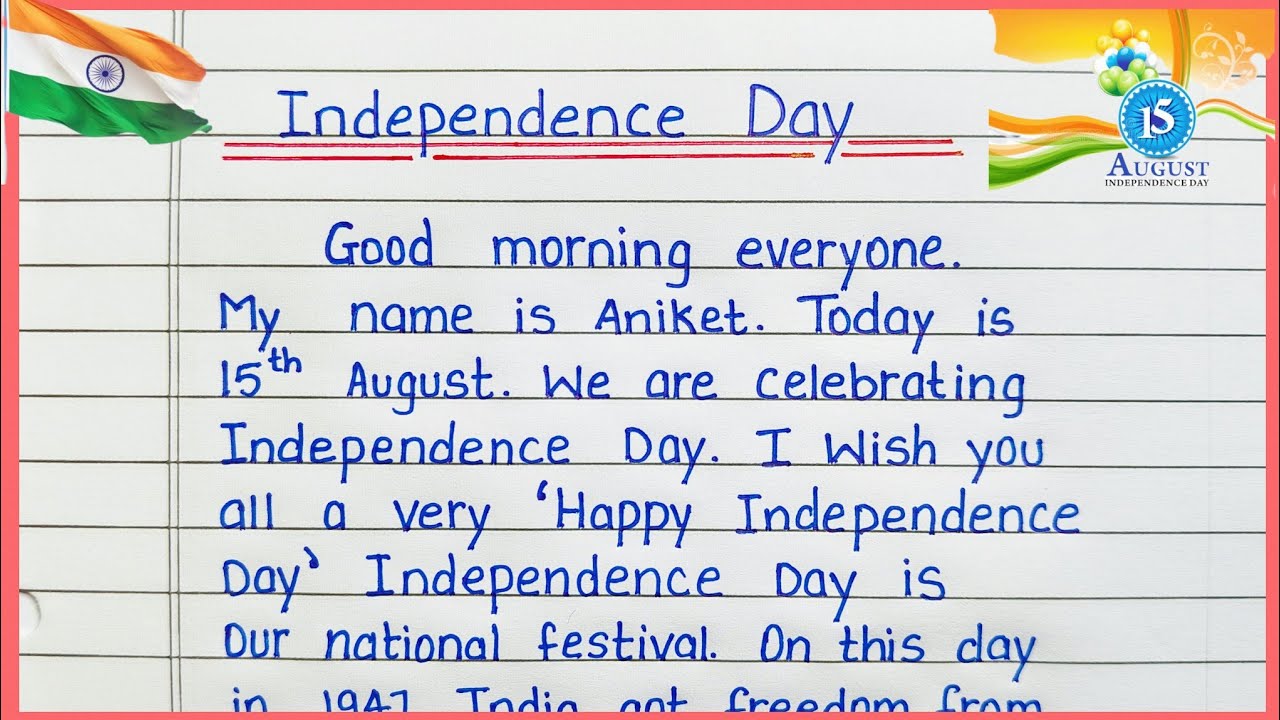 Independence Day
15
AUGUST
INDEPENDENCE DAY
Good morning everyone.
My name is Aniket. Today is
15th August. We are celebrating
Independence Day. I Wish you
all a very ‘Happy Independence
Day’ Independence Day is
Our national festival. On this day
in 1947 India got freedom from